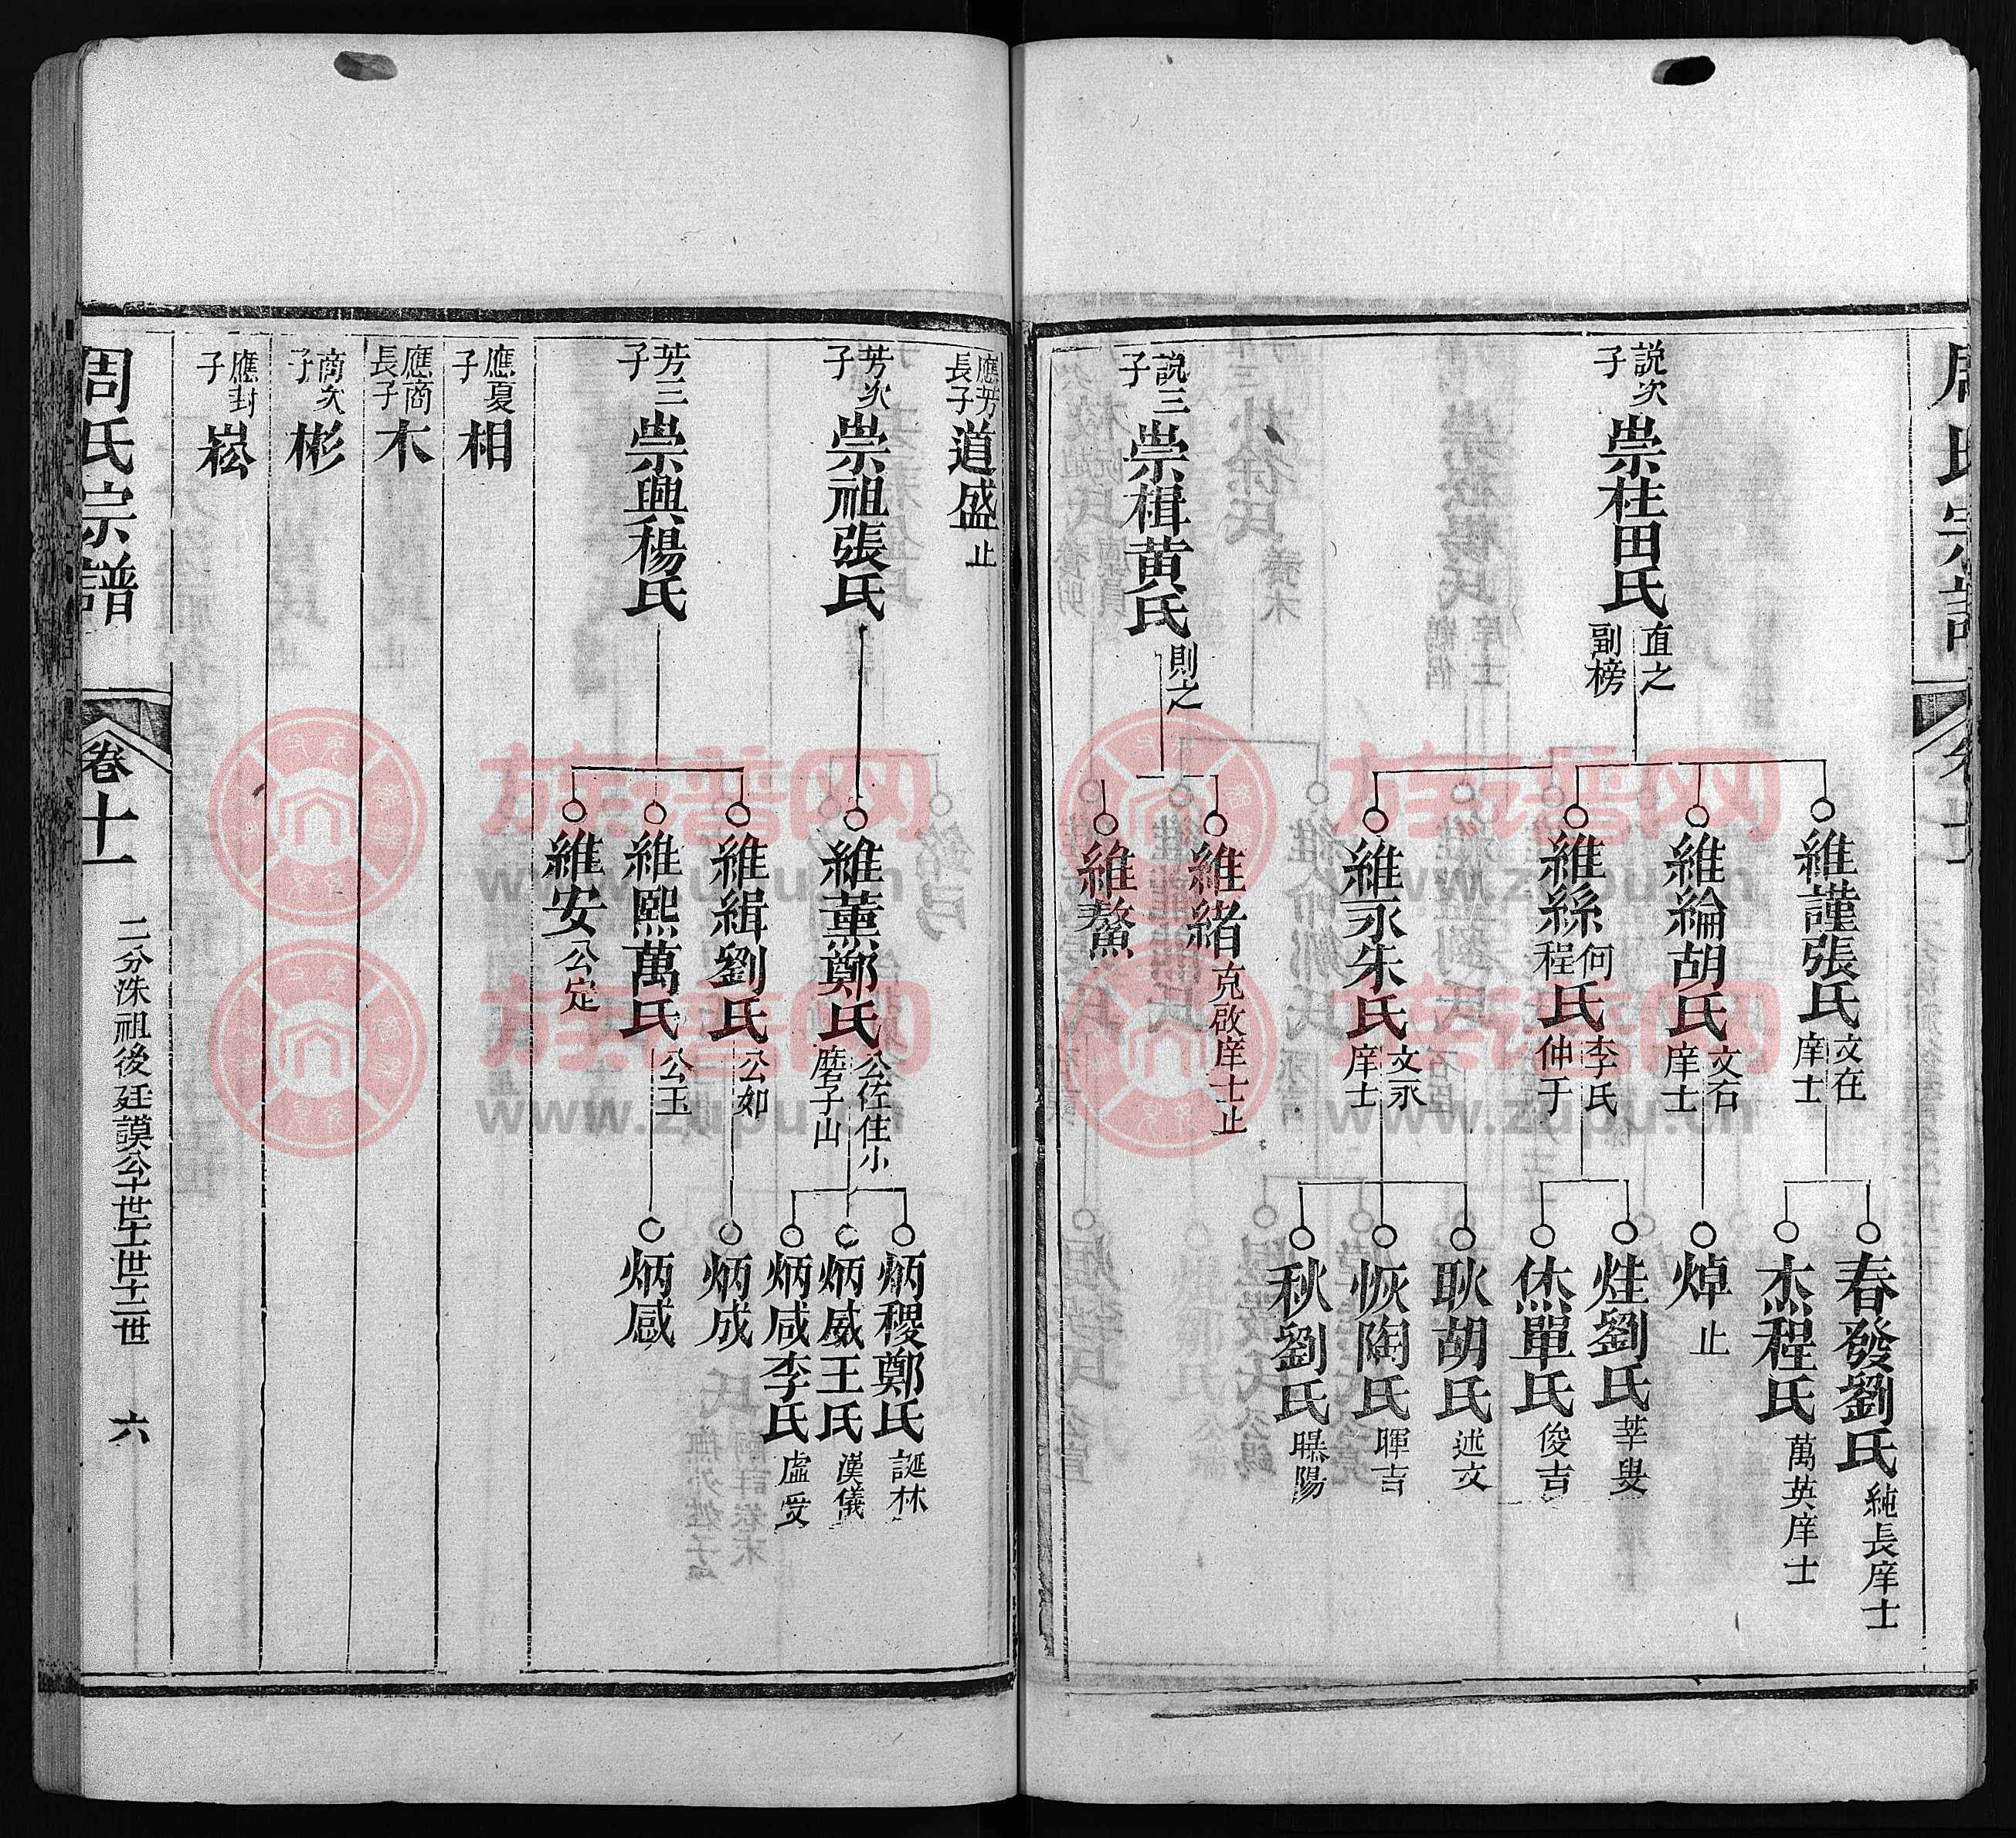 周氏宗譜
說次子
崇桂田氏
直之
副榜
維謹張氏
文在
庠士
春發劉氏
純長庠士
杰程氏
萬英庠士
維綸胡氏
文石
庠士
焯
止
維絲何程氏
李氏
仲于
烓劉氏
莘叟
烋單氏
俊吉
維永朱氏
文永
庠士
耿胡氏
述文
恢陶氏
暉吉
秋劉氏
曝陽
說三子
崇楫黄氏
則之
維緒
克啟庠士止
維鰲
應芳長子
道盛
止
芳次子
崇祖張氏
維藳鄭氏
公佐住小
磨子山
炳稷鄭氏
誕林
炳威王氏
漢儀
炳咸李氏
虛受
芳三子
崇興楊氏
維緝劉氏
公如
炳成
維熙萬氏
公玉
炳感
維安
公定
應夏子
相
應商長子
木
商次子
彬
應封子
崧
周氏宗譜
卷十一
二分洙祖後廷謨公十世十一世十二世
六
族谱网
www.zupu.cn
族谱网
www.zupu.cn
族谱网
www.zupu.cn
族谱网
www.zupu.cn